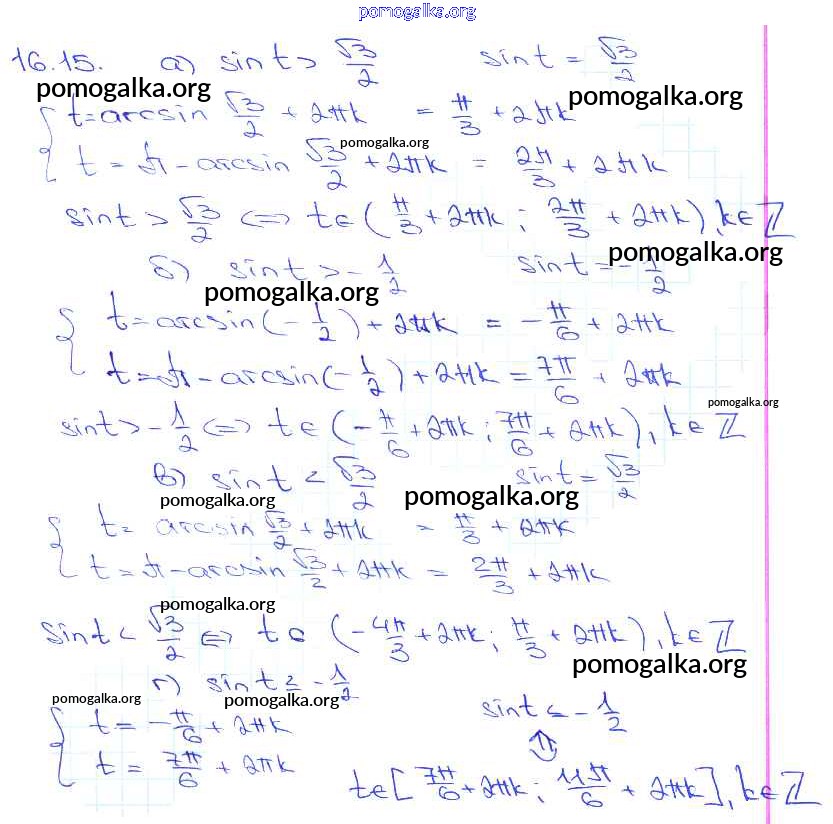 pomogalka.org
16.15. а) sin t > √3/2 sin t = √3/2
pomogalka.org pomogalka.org
{ t = arcsin √3/2 + 2πk = π/3 + 2πk
pomogalka.org
t = π - arcsin √3/2 + 2πk = 2π/3 + 2πk
sin t > √3/2 <=> t ∈ (π/3 + 2πk ; 2π/3 + 2πk), k ∈ Z
pomogalka.org
б) sin t > -1/2 sin t = -1/2
pomogalka.org
{ t = arcsin(-1/2) + 2πk = -π/6 + 2πk
t = π - arcsin(-1/2) + 2πk = 7π/6 + 2πk
pomogalka.org
sin t > -1/2 <=> t ∈ (-π/6 + 2πk ; 7π/6 + 2πk), k ∈ Z
в) sin t < √3/2 sin t = √3/2
pomogalka.org pomogalka.org
{ t = arcsin √3/2 + 2πk = π/3 + 2πk
t = π - arcsin √3/2 + 2πk = 2π/3 + 2πk
pomogalka.org
sin t < √3/2 <=> t ∈ (-4π/3 + 2πk ; π/3 + 2πk), k ∈ Z
pomogalka.org
г) sin t ≤ -1/2
pomogalka.org pomogalka.org
{ t = -π/6 + 2πk sin t ≤ -1/2
t = 7π/6 + 2πk ⇕
t ∈ [7π/6 + 2πk ; 11π/6 + 2πk], k ∈ Z